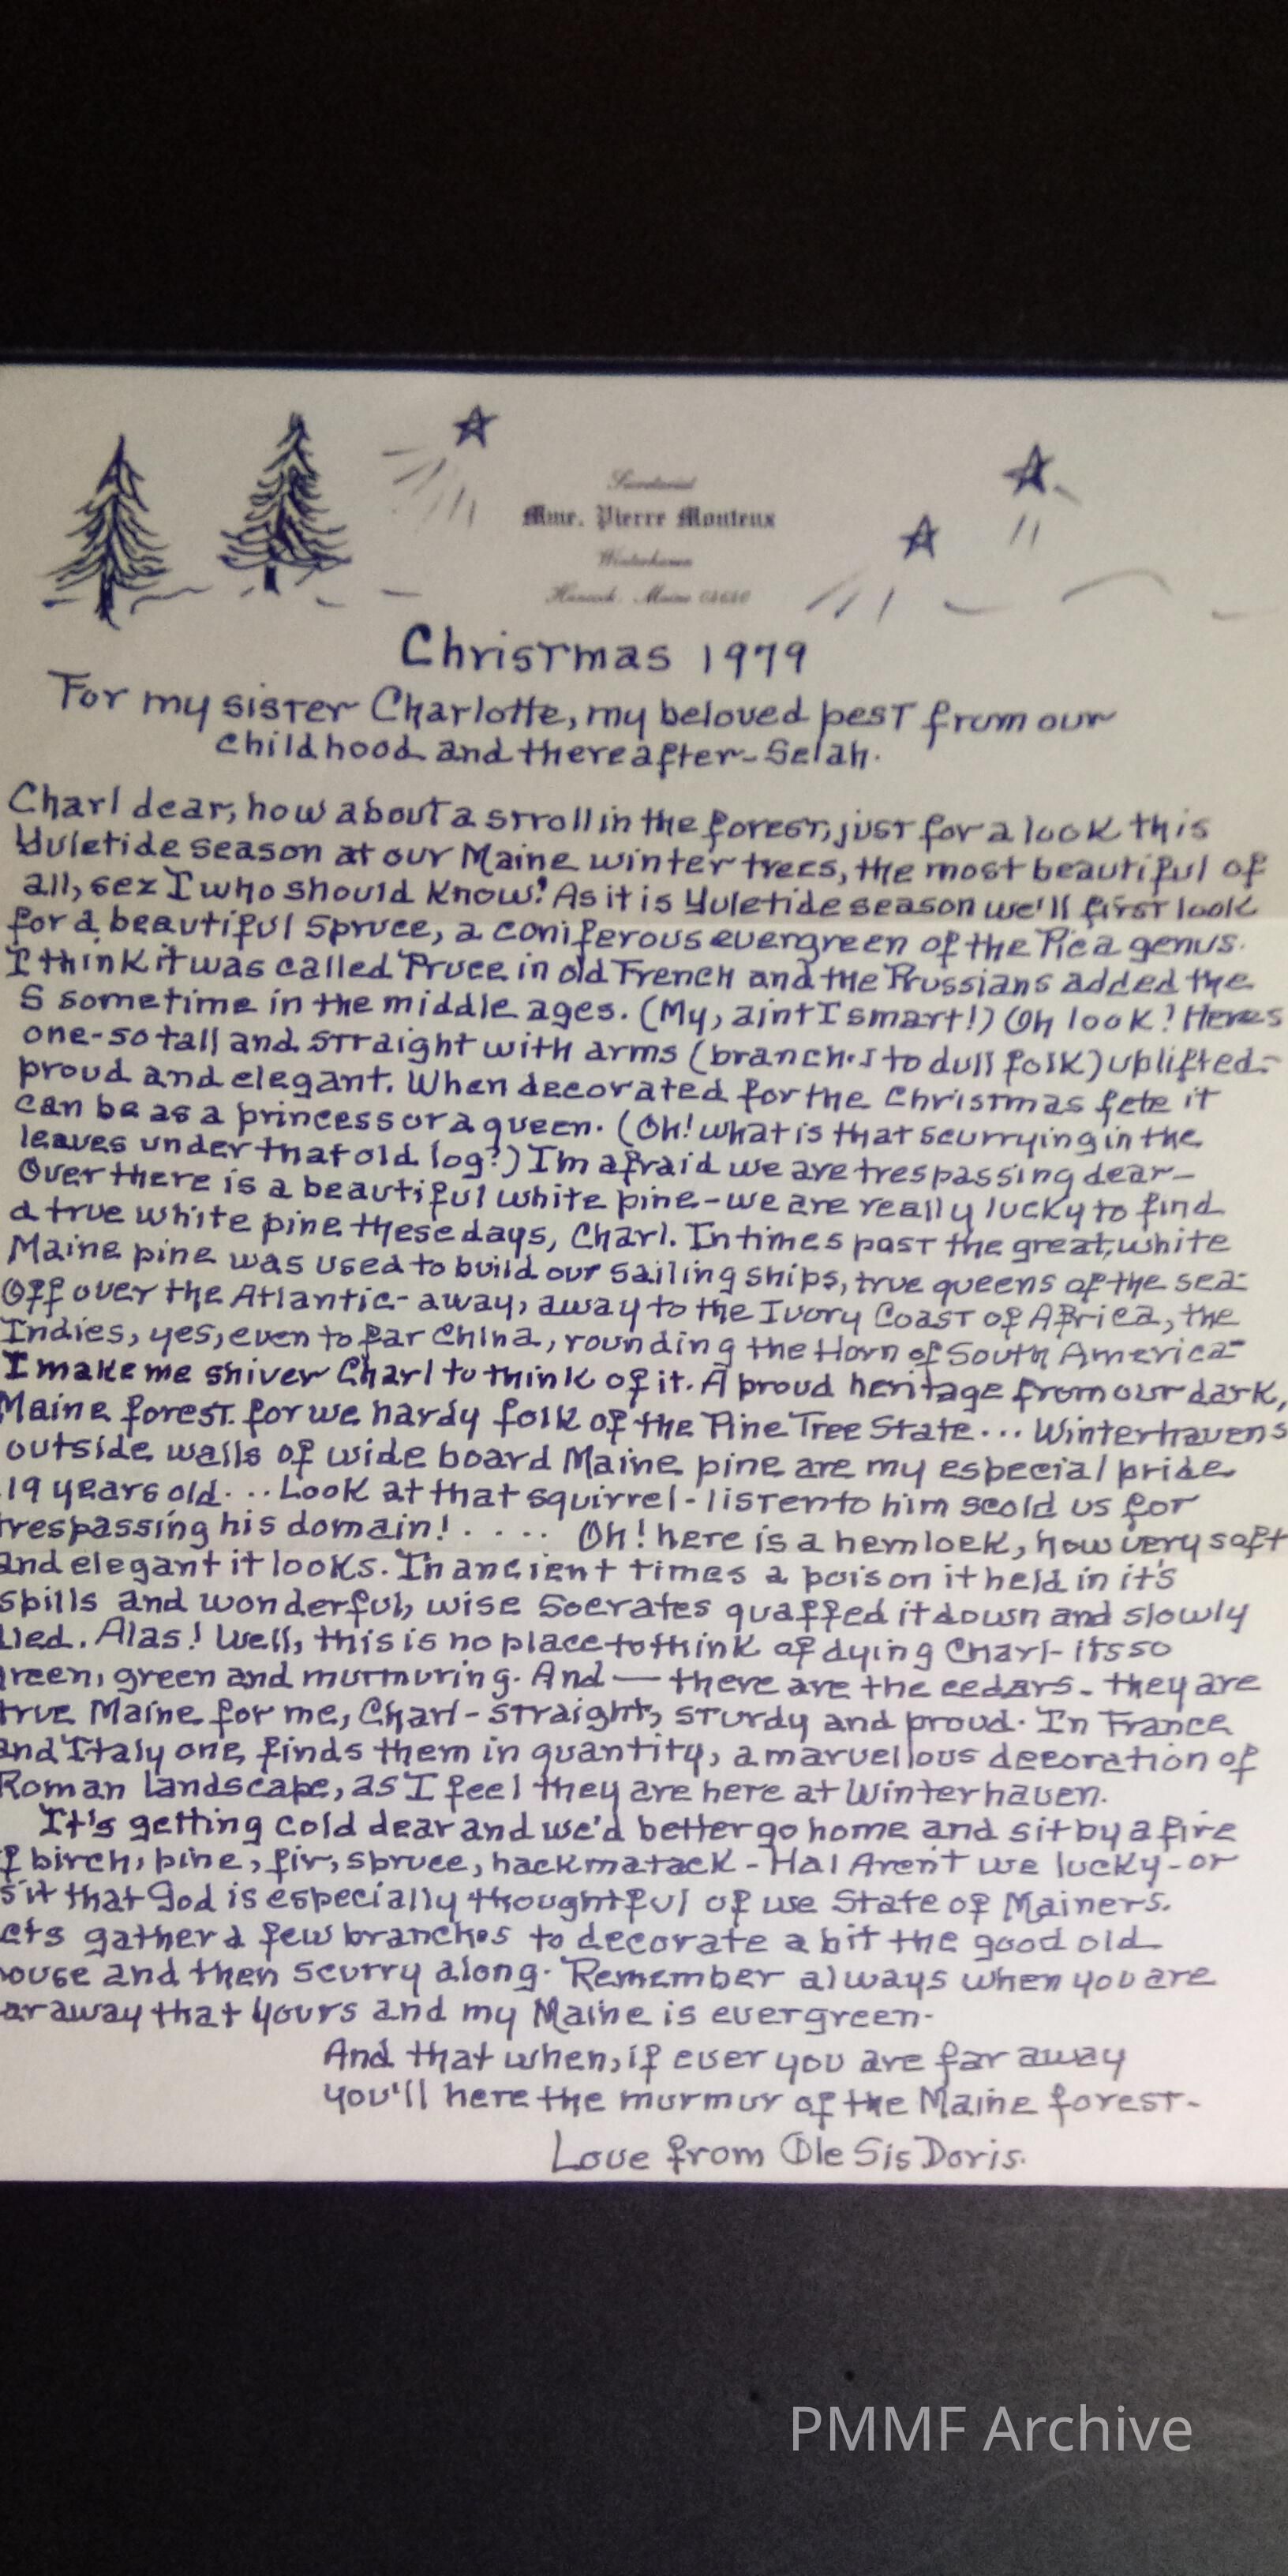 Secretariat
Mme. Pierre Monteux
Winterhaven
Hancock, Maine 04640
Christmas 1979
For my sister Charlotte, my beloved pest from our
childhood and thereafter - Selah.
Charl dear, how about a stroll in the forest, just for a look this
Yuletide season at our Maine winter trees, the most beautiful of
all, sez I who should know! As it is Yuletide season we'll first look
for a beautiful Spruce, a coniferous evergreen of the Picea genus.
I think it was called Pruce in old French and the Prussians added the
S sometime in the middle ages. (My, aint I smart!) Oh look! Heres
one-so tall and straight with arms (branches to dull folk) uplifted-
proud and elegant. When decorated for the Christmas fete it
can be as a princess or a queen. (Oh! what is that scurrying in the
leaves under that old log?) I'm afraid we are trespassing dear-
Over there is a beautiful white pine-we are really lucky to find
a true white pine these days, Charl. In times past the great, white
Maine pine was used to build our sailing ships, true queens of the sea-
Off over the Atlantic- away, away to the Ivory Coast of Africa, the
Indies, yes, even to far China, rounding the Horn of South America-
I make me shiver Charl to think of it. A proud heritage from our dark,
Maine forest. for we hardy folk of the Pine Tree State... Winterhavens
outside walls of wide board Maine pine are my especial pride
19 years old... Look at that squirrel - listen to him scold us for
respassing his domain! .... Oh! here is a hemlock, how very soft
and elegant it looks. In ancient times a poison it held in it's
spills and wonderful, wise Socrates quaffed it down and slowly
died. Alas! Well, this is no place to think of dying Charl- its so
reen, green and murmuring. And — there are the cedars - they are
true Maine for me, Charl - straight, sturdy and proud. In France
and Italy one, finds them in quantity, a marvellous decoration of
Roman landscape, as I feel they are here at Winterhaven.
It's getting cold dear and we'd better go home and sit by a fire
f birch, pine, fir, spruce, hackmatack - Ha! Aren't we lucky - or
s it that God is especially thoughtful of we State of Mainers.
ets gather a few branches to decorate a bit the good old
ouse and then scurry along. Remember always when you are
ar away that yours and my Maine is evergreen.
And that when, if ever you are far away
you'll here the murmur of the Maine forest.
Love from Ole Sis Doris.
PMMF Archive